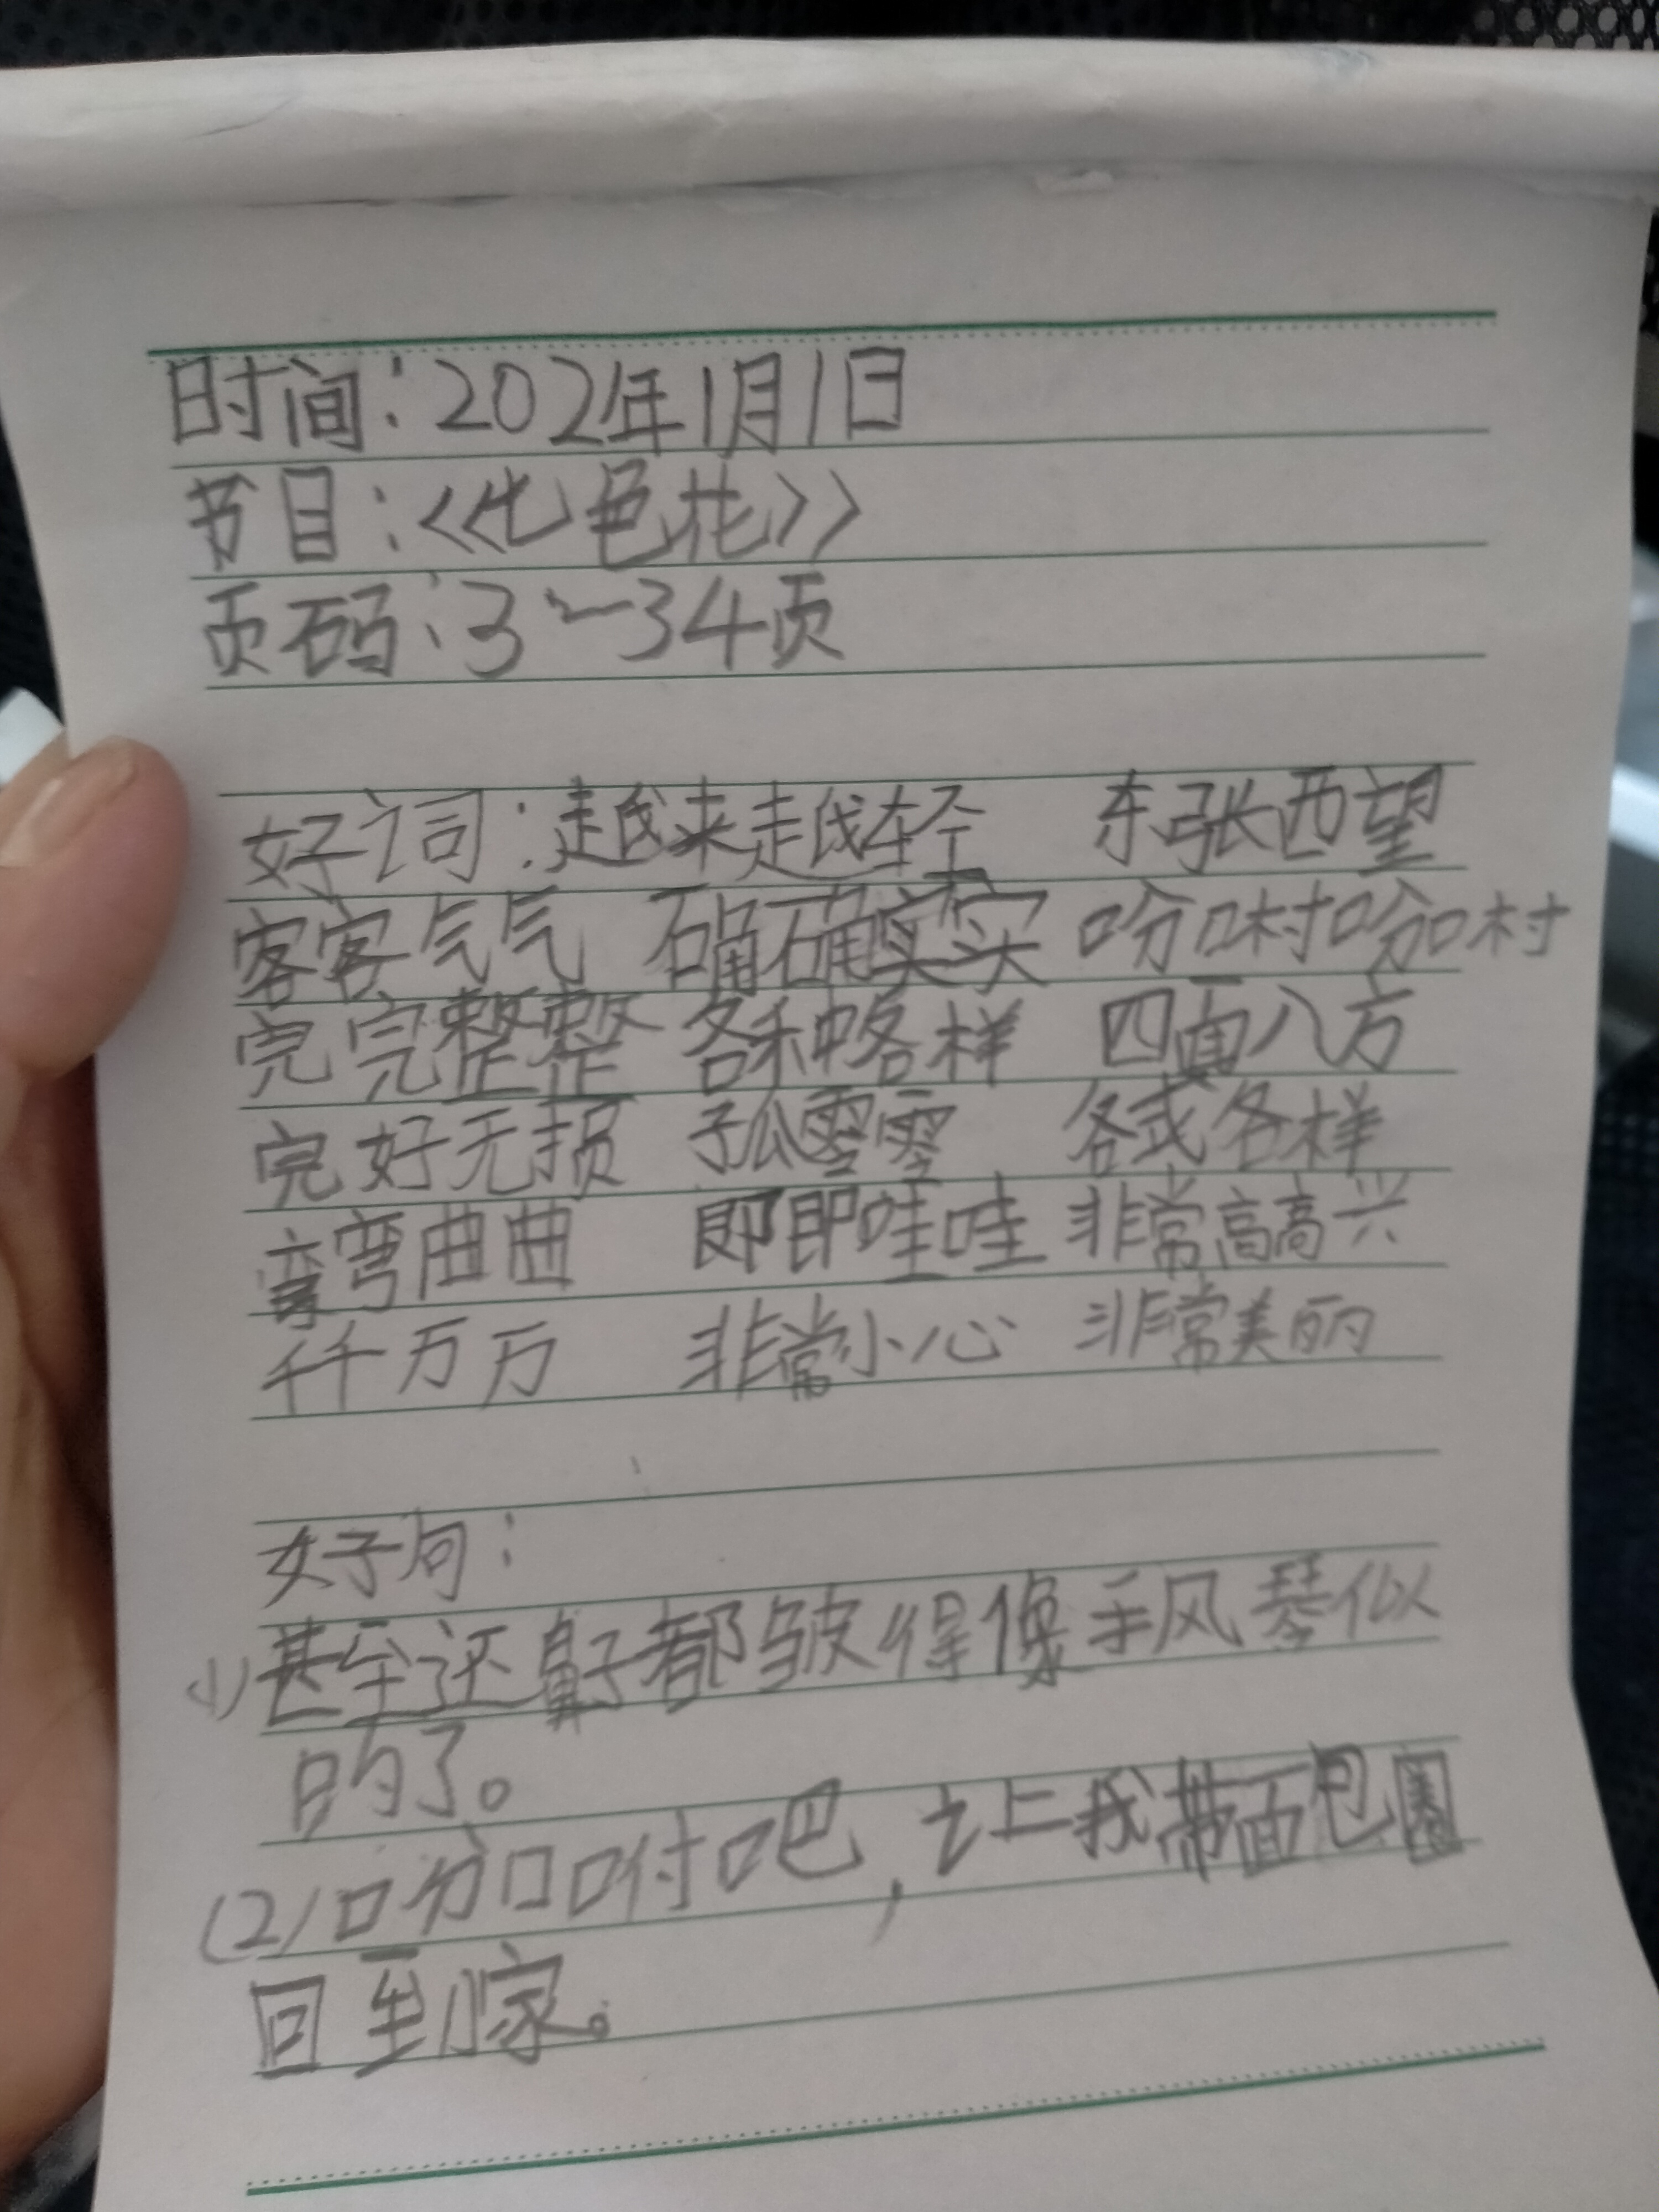 时间：202年1月1日
节目：《七色花》
页码：3～34页
好词：越来越轻 东张西望
客客气气 确确实实 吩咐吩咐
完完整整 各种各样 四面八方
完好无损 孤零零 各式各样
弯弯曲曲 即即哇哇 非常高高兴
千千万万 非常小心 非常美丽
好句：
(1)甚至还鼻子都皱得像手风琴似
的了。
(2)吩咐吧，让我带面包圈
回到家。